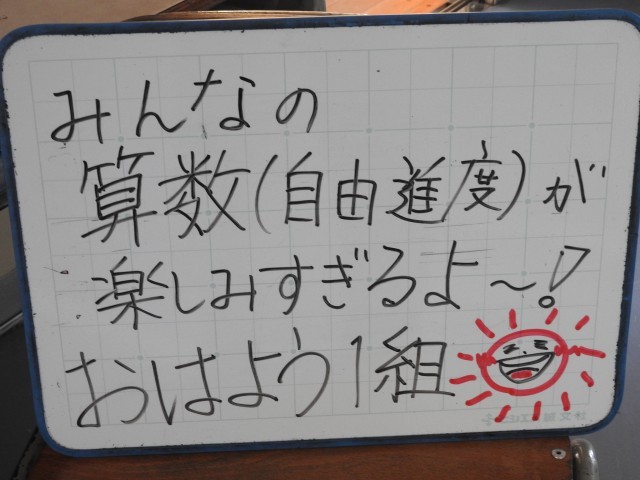 みんなの
算数(自由進度)が
楽しみすぎるよ〜!
おはよう1組